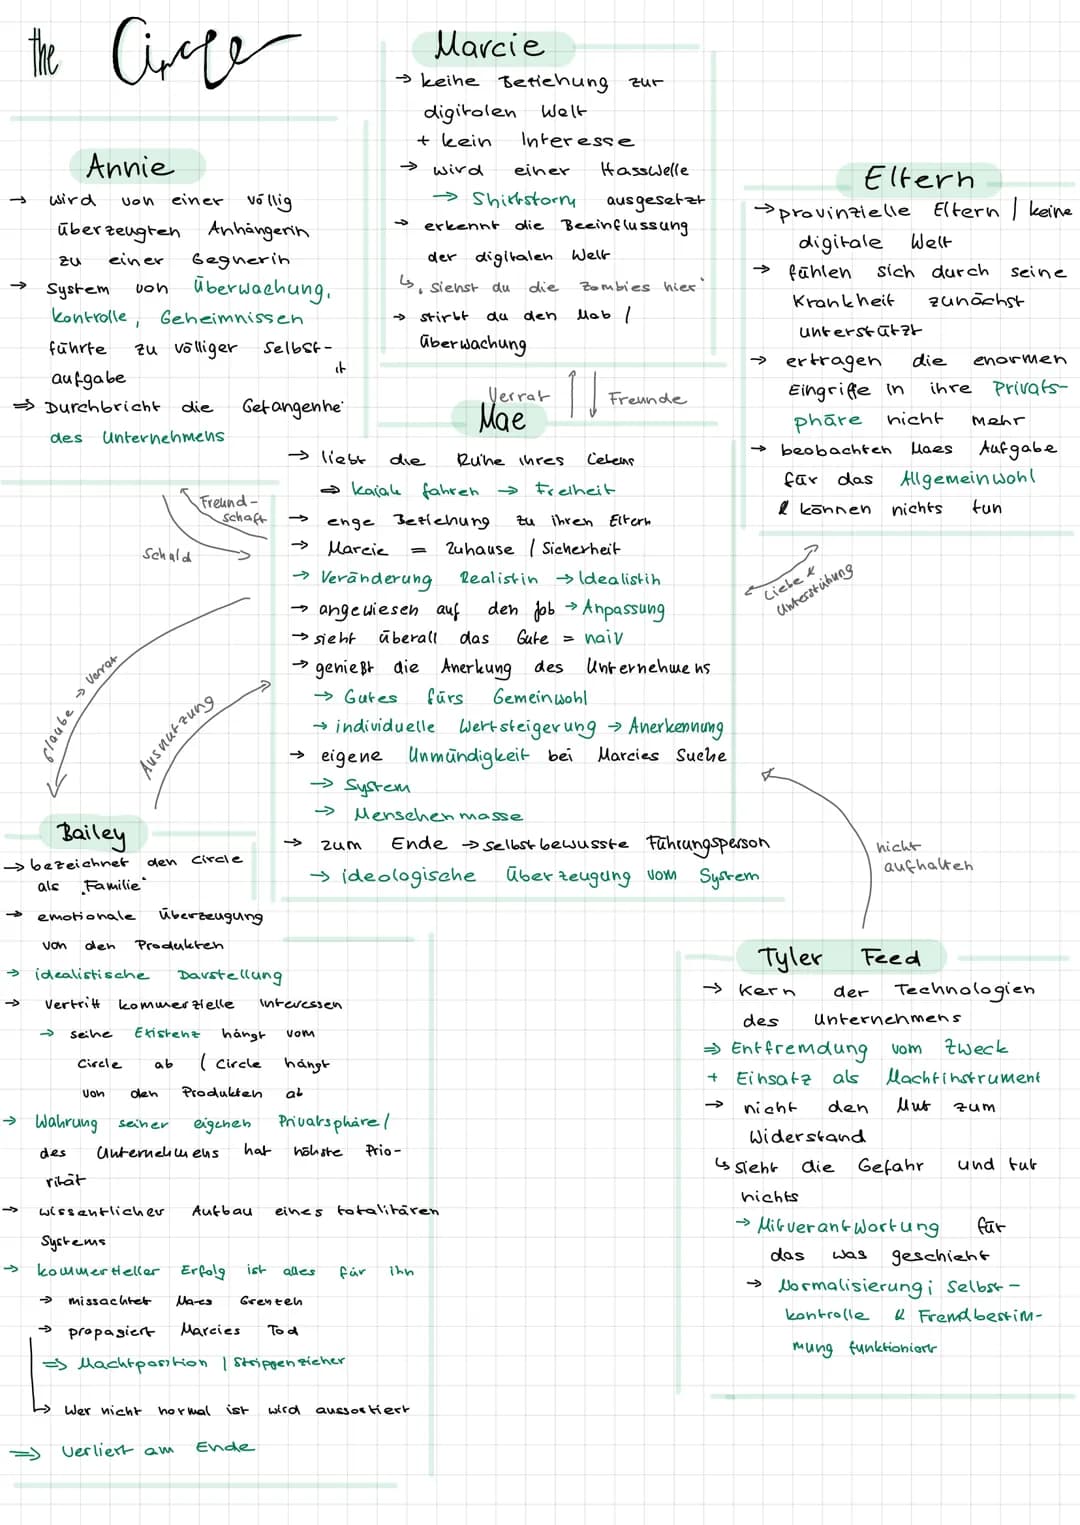 the Circle
Marcie
→ keine Beziehung zur
digitalen Welt
+ kein Interesse
→ wird einer Hasswelle
→ Shitstorm ausgesetzt
→ erkennt die Beeinflussung
der digitalen Welt
↳ „siehst du die Zombies hier“
→ stirbt du den Mob /
Überwachung
Annie
→ wird von einer völlig
überzeugten Anhängerin
zu einer Gegnerin
→ System von Überwachung,
Kontrolle, Geheimnissen
führte zu völliger Selbst-
aufgabe
⇒ Durchbricht die Gefangenheit
des Unternehmens
Eltern
→ provinzielle Eltern / keine
digitale Welt
→ fühlen sich durch seine
Krankheit zunächst
unterstützt
→ ertragen die enormen
Eingriffe in ihre Privats-
phäre nicht mehr
→ beobachten Maes Aufgabe
für das Allgemeinwohl
& können nichts tun
Verrat
Freunde
Mae
→ liebt die Ruhe ihres Lebens
⇒ Kajak fahren → Freiheit
→ enge Beziehung zu ihren Eltern
→ Marcie = Zuhause / Sicherheit
→ Veränderung Realistin → Idealistin
→ angewiesen auf den Job → Anpassung
→ sieht überall das Gute = naiv
→ genießt die Anerkung des Unternehmens
→ Gutes fürs Gemeinwohl
→ individuelle Wertsteigerung → Anerkennung
→ eigene Unmündigkeit bei Marcies Suche
→ System
→ Menschenmasse
→ zum Ende → selbstbewusste Führungsperson
→ ideologische Überzeugung vom System
Freund-
schaft
Schuld
Liebe &
Unterstützung
Glaube → Verrat
Ausnutzung
nicht
aufhalten
Bailey
→ bezeichnet den Circle
als „Familie“
→ emotionale Überzeugung
von den Produkten
→ idealistische Darstellung
→ vertritt kommerzielle Interessen
→ seine Existenz hängt vom
Circle ab / Circle hängt
von den Produkten ab
→ Wahrung seiner eigenen Privatsphäre/
des Unternehmens hat höhste Prio-
rität
→ wissentlicher Aufbau eines totalitären
Systems
→ kommerzieller Erfolg ist alles für ihn
→ missachtet Maes Grenzen
→ propagiert Marcies Tod
⇒ Machtposition / Strippenzieher
↳ Wer nicht normal ist wird aussortiert
⇒ verliert am Ende
Tyler Feed
→ Kern der Technologien
des Unternehmens
⇒ Entfremdung vom Zweck
+ Einsatz als Machtinstrument
→ nicht den Mut zum
Widerstand
↳ sieht die Gefahr und tut
nichts
→ Mitverantwortung für
das was geschieht
→ Normalisierung; Selbst-
kontrolle & Fremdbestim-
mung funktioniert